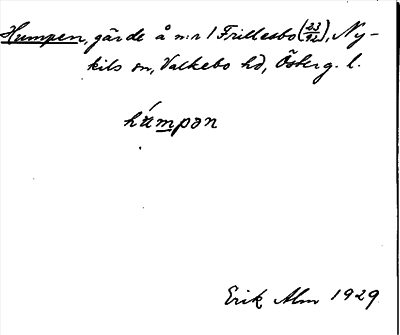 Humpen, gärde å n:r 1 Frillesbo (23/92), Ny-
kils sn, Valkebo hd, Österg. l.
hu̇mpən
Erik Alm 1929